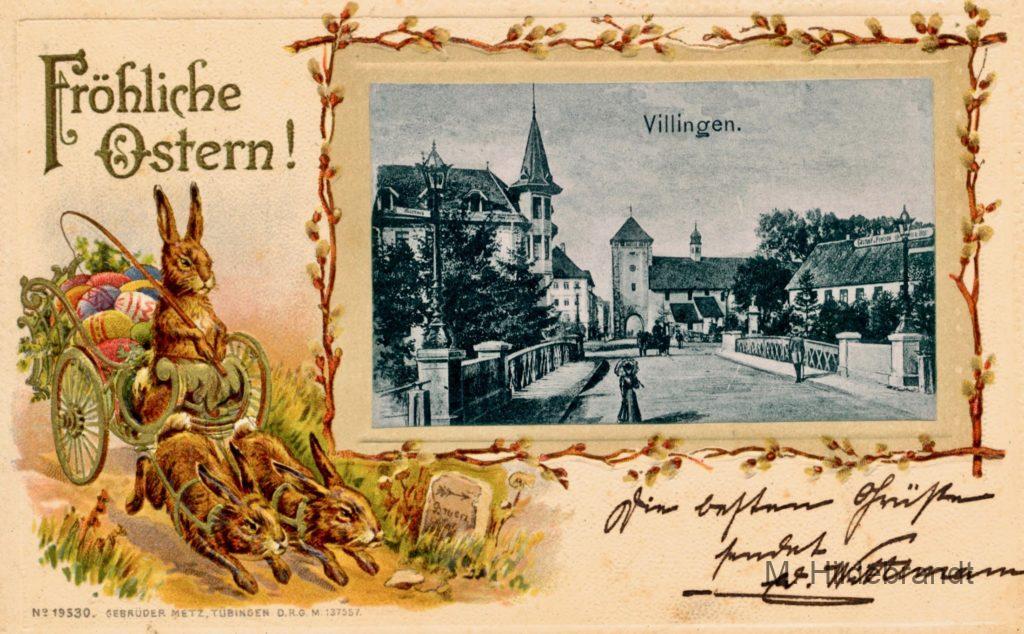 Fröhliche
Ostern!
Villingen.
Die besten Grüße
sendet
M. Hildebrandt
No 19530. GEBRÜDER METZ, TÜBINGEN D.R.G.M. 137557.